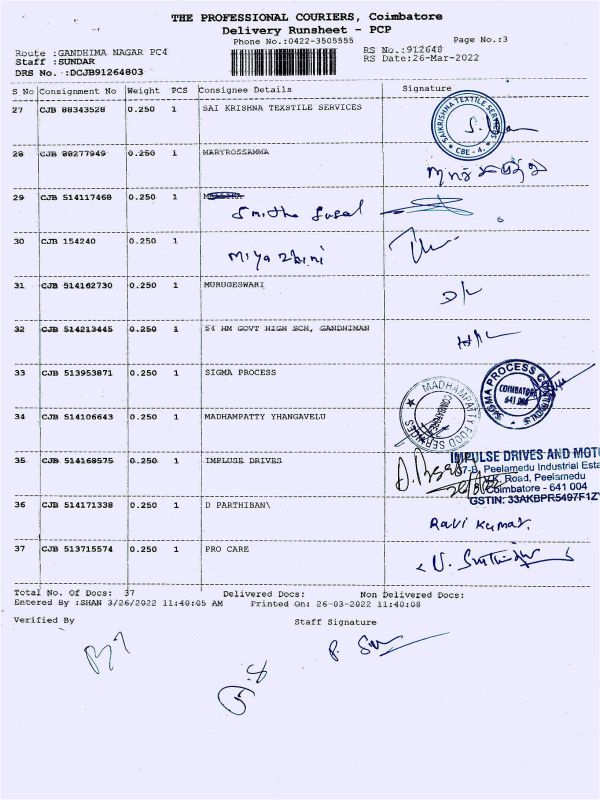 THE PROFESSIONAL COURIERS, Coimbatore
Delivery Runsheet - PCP
Phone No.:0422-3505555
Page No.:3
Route :GANDHIMA NAGAR PC4
RS No.:912648
Staff :SUNDAR
RS Date:26-Mar-2022
DRS No. :DCJB91264803
S No Consignment No Weight PCS Consignee Details Signature
27 CJB 88343528 0.250 1 SAI KRISHNA TEXSTILE SERVICES
SAIKRISHNA TEXTILE SERVICES
* CBE - 4. *
28 CJB 88277949 0.250 1 MARYROZSAMMA
29 CJB 514117468 0.250 1
Smitha Susal
30 CJB 154240 0.250 1
31 CJB 514162730 0.250 1 MURUGESWARI
D/L
32 CJB 514213445 0.250 1 54 HM GOVT HIGH SCH, GANDHIMAN
33 CJB 513953871 0.250 1 SIGMA PROCESS
SIGMA PROCESS CONTROLS
COIMBATORE
641 006
34 CJB 514106643 0.250 1 MADHAMPATTY YHANGAVELU
MADHAMPATTY FOOD SERVICES
COIMBATORE
35 CJB 514168575 0.250 1 IMPLUSE DRIVES
IMPULSE DRIVES AND MOTO
Peelamedu Industrial Esta
Road, Peelamedu
Coimbatore - 641 004
GSTIN: 33AKBPR5497F1ZY
36 CJB 514171338 0.250 1 D PARTHIBAN\
Ravi Kumar.
37 CJB 513715574 0.250 1 PRO CARE
Total No. Of Docs: 37 Delivered Docs: Non Delivered Docs:
Entered By :SHAN 3/26/2022 11:40:05 AM Printed On: 26-03-2022 11:40:08
Verified By Staff Signature